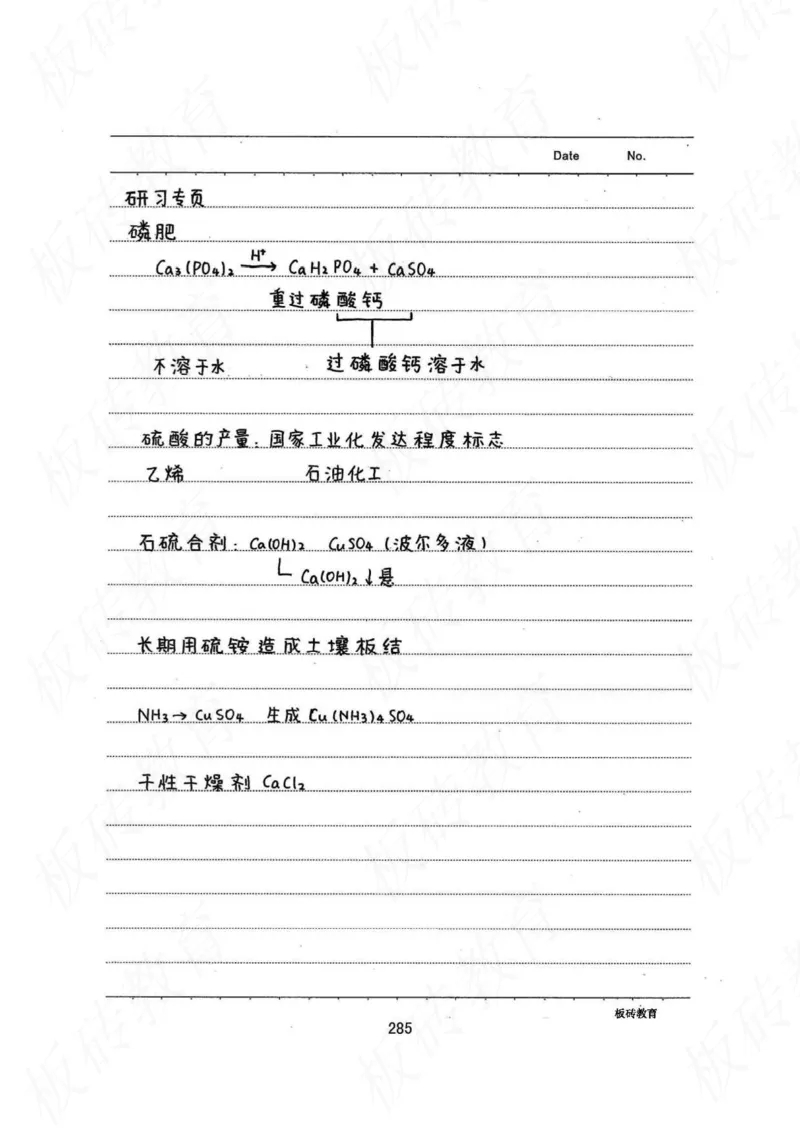 Date No.
研习专页
磷肥
Ca₃(PO₄)₂ —H⁺→ CaH₂PO₄ + CaSO₄
重过磷酸钙
不溶于水 过磷酸钙溶于水
硫酸的产量:国家工业化发达程度标志
乙烯 石油化工
石硫合剂:Ca(OH)₂ CuSO₄(波尔多液)
Ca(OH)₂↓悬
长期用硫铵造成土壤板结
NH₃→CuSO₄ 生成Cu(NH₃)₄SO₄
干性干燥剂 CaCl₂
板砖教育
285